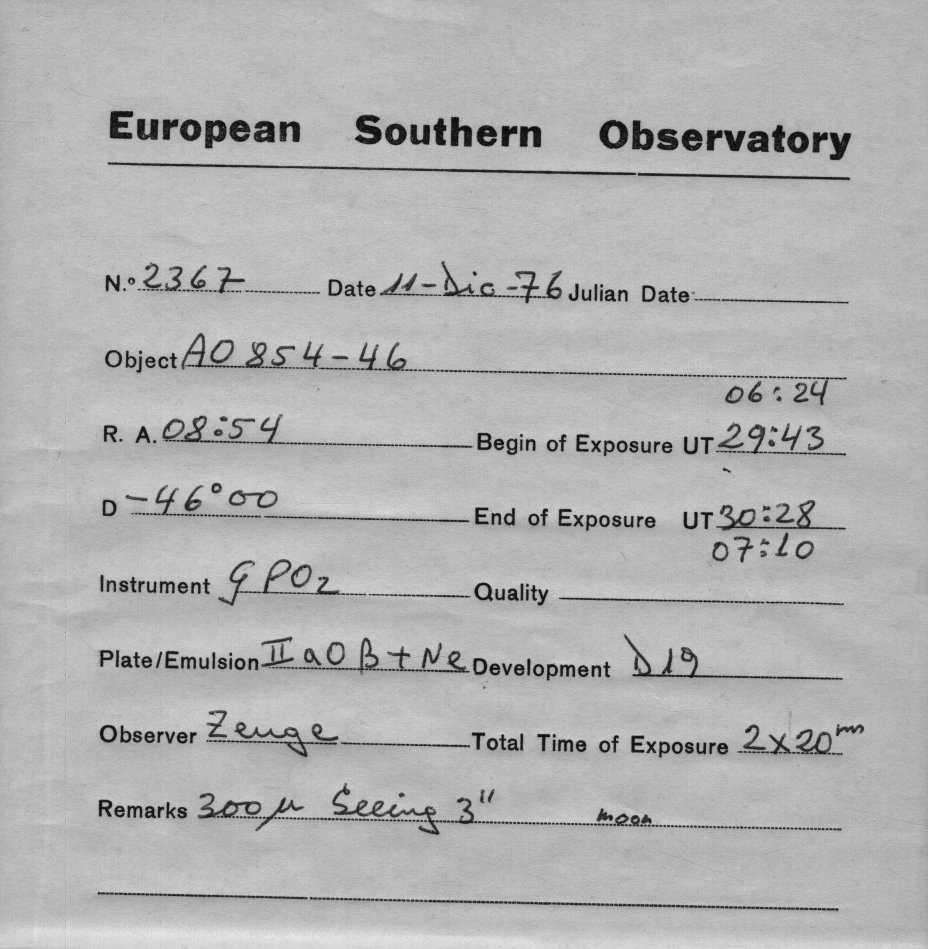 European Southern Observatory
N.º 2367 Date 11-Dic-76 Julian Date
Object A0854-46
06:24
R. A. 08:54 Begin of Exposure UT 29:43
D -46°00 End of Exposure UT 30:28
07:10
Instrument GPO2 Quality
Plate/Emulsion IIaO β + Ne Development D19
Observer Zeuge Total Time of Exposure 2x20m
Remarks 300 μ Seeing 3" moon